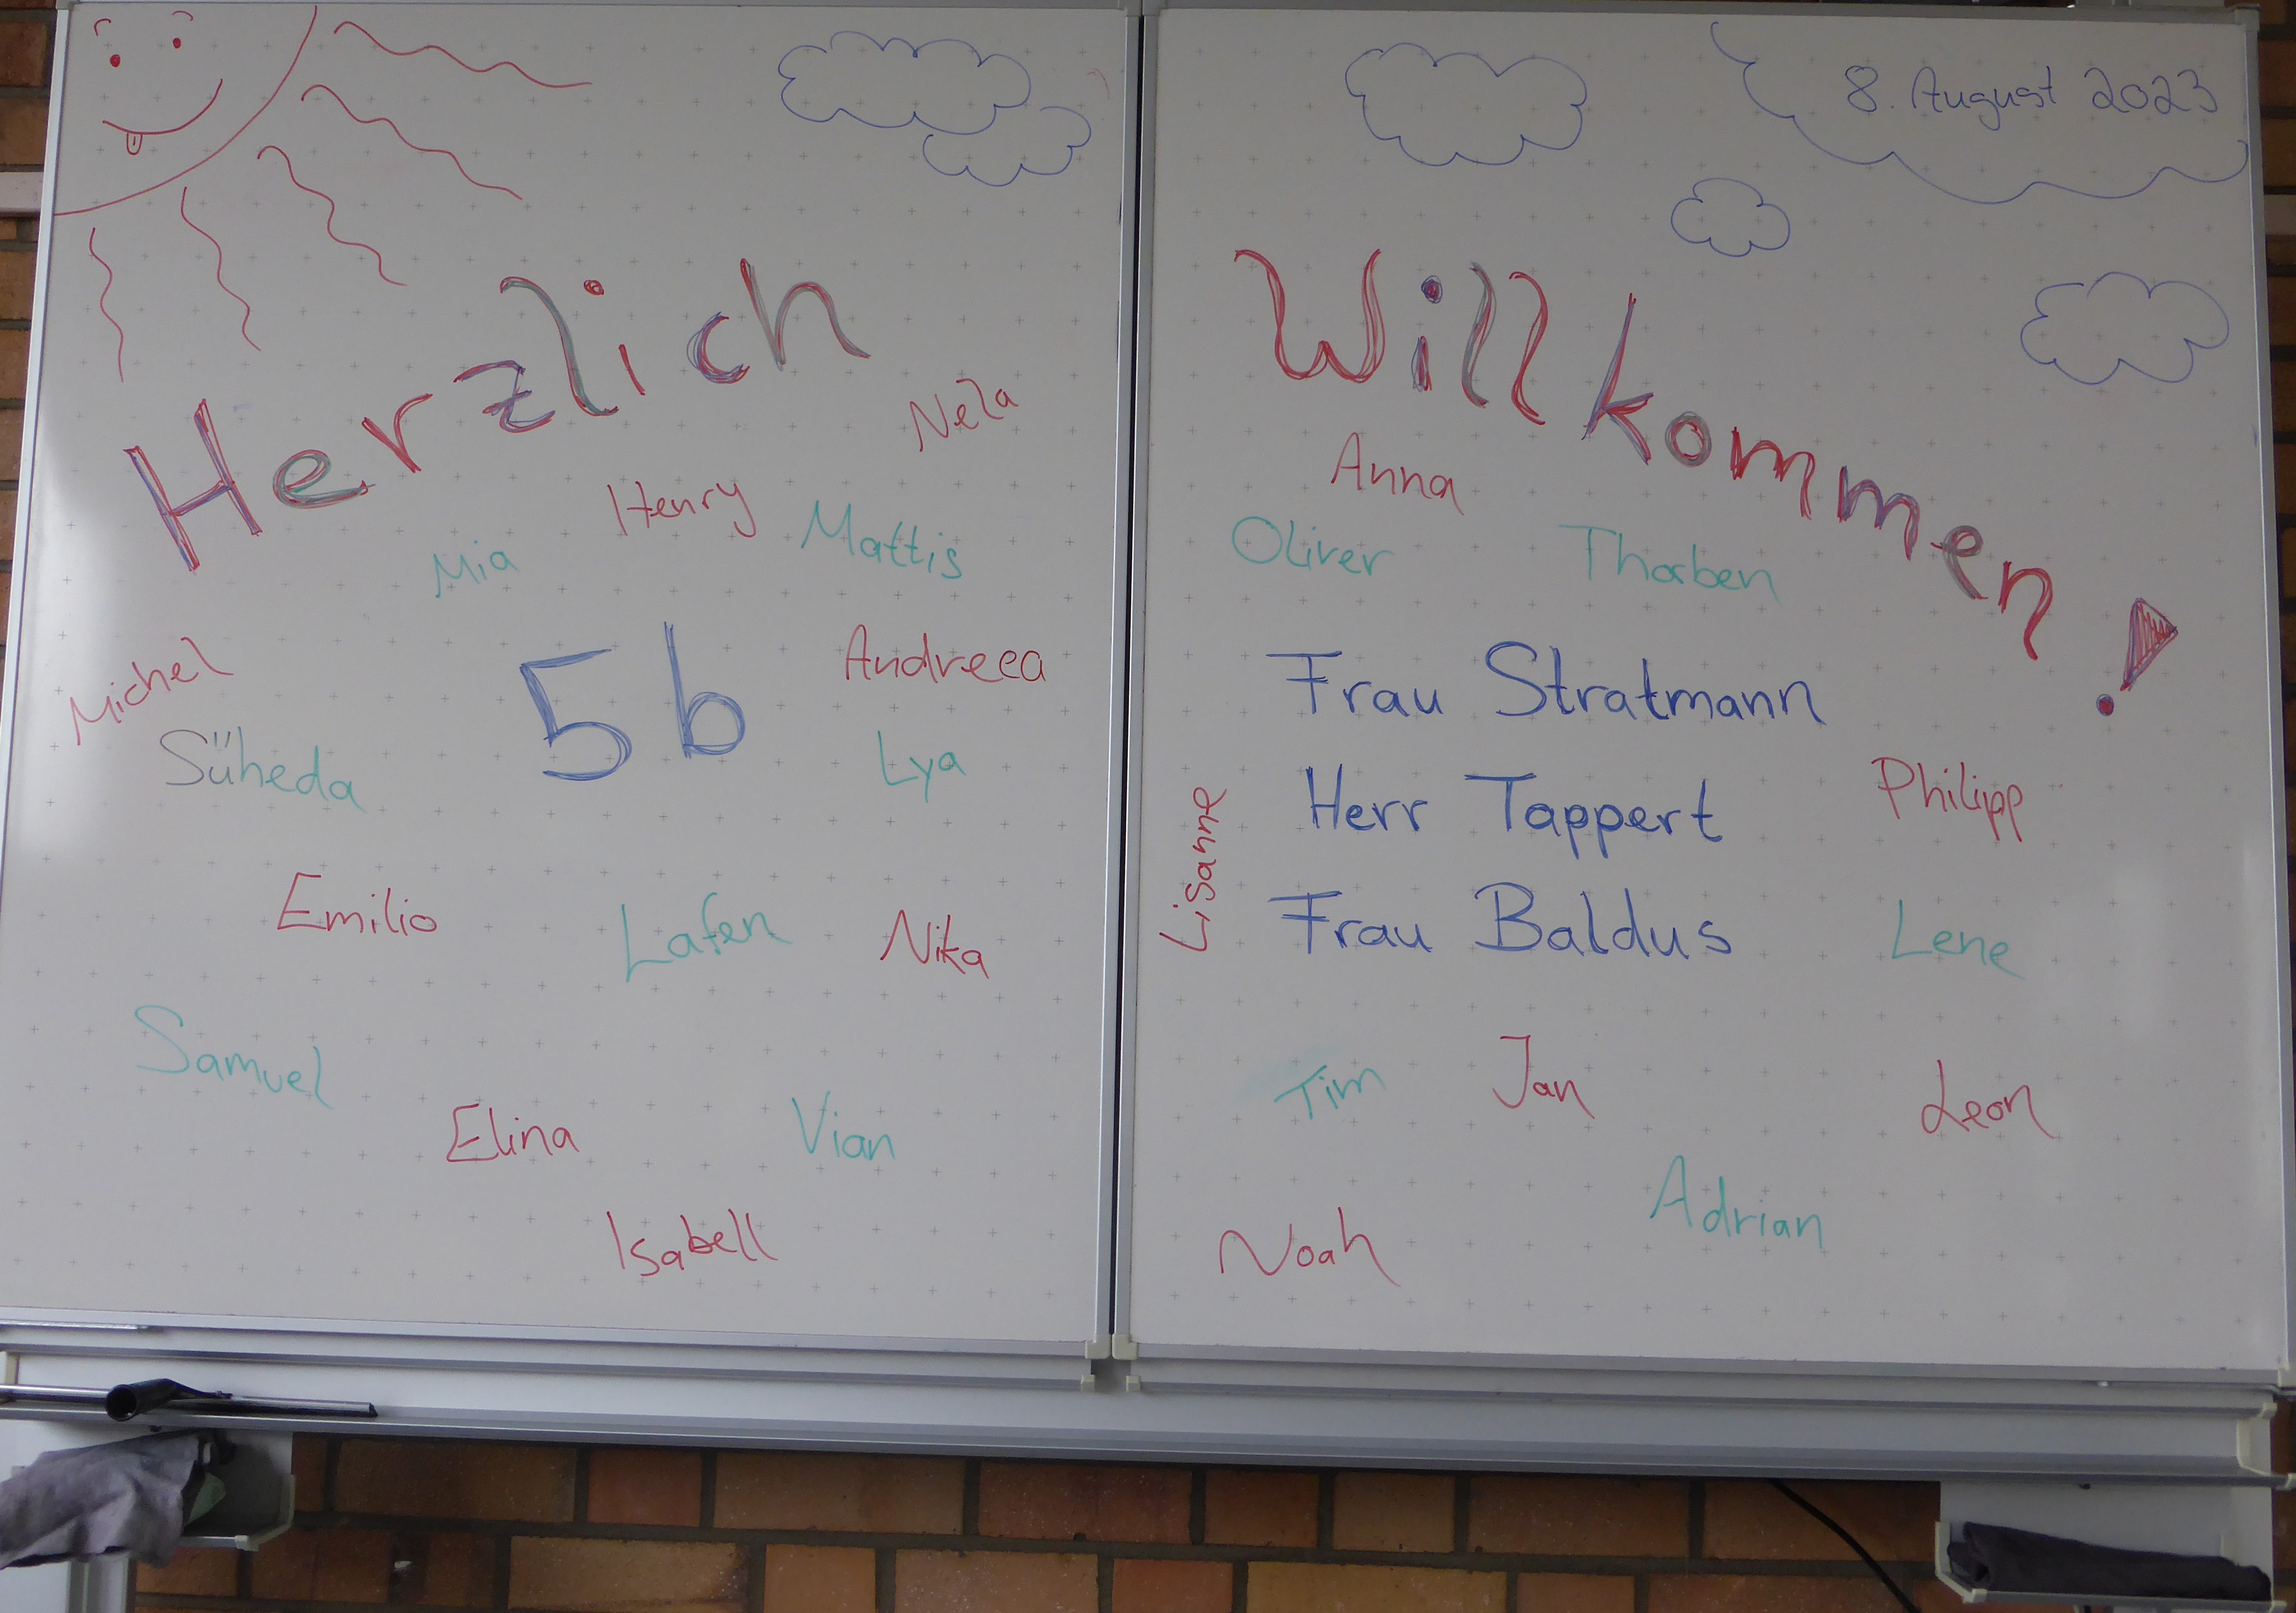 8. August 2023
Herzlich Willkommen!
Nela
Henry
Mattis
Mia
Michel
Süheda
5b
Andreea
Lya
Emilio
Lafen
Nika
Samuel
Elina
Vian
Isabell
Anna
Oliver
Thorben
Frau Stratmann
Herr Tappert
Frau Baldus
Lisanne
Philipp
Lene
Tim
Jan
Leon
Adrian
Noah